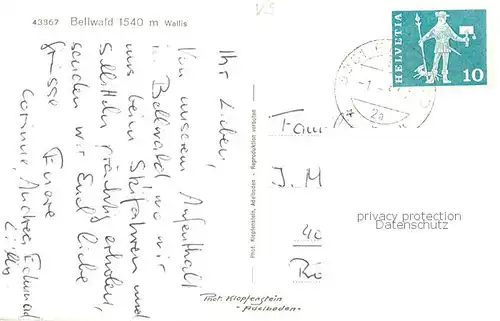 43367 Bellwald 1540 m Wallis
Ihr Lieben,
Von unserem Aufenthalt
in Bellwald wo wir
uns beim Skifahren und
Schlitteln prächtig erholen,
senden wir Euch liebe
Grüsse
Eure
Corinne, Andrea, Edmund
Phot. Klopfenstein, Adelboden - Reproduktion verboten
HELVETIA
10
2a
Fam
J. M
Phot. Klopfenstein
-Adelboden-
privacy protection
Datenschutz